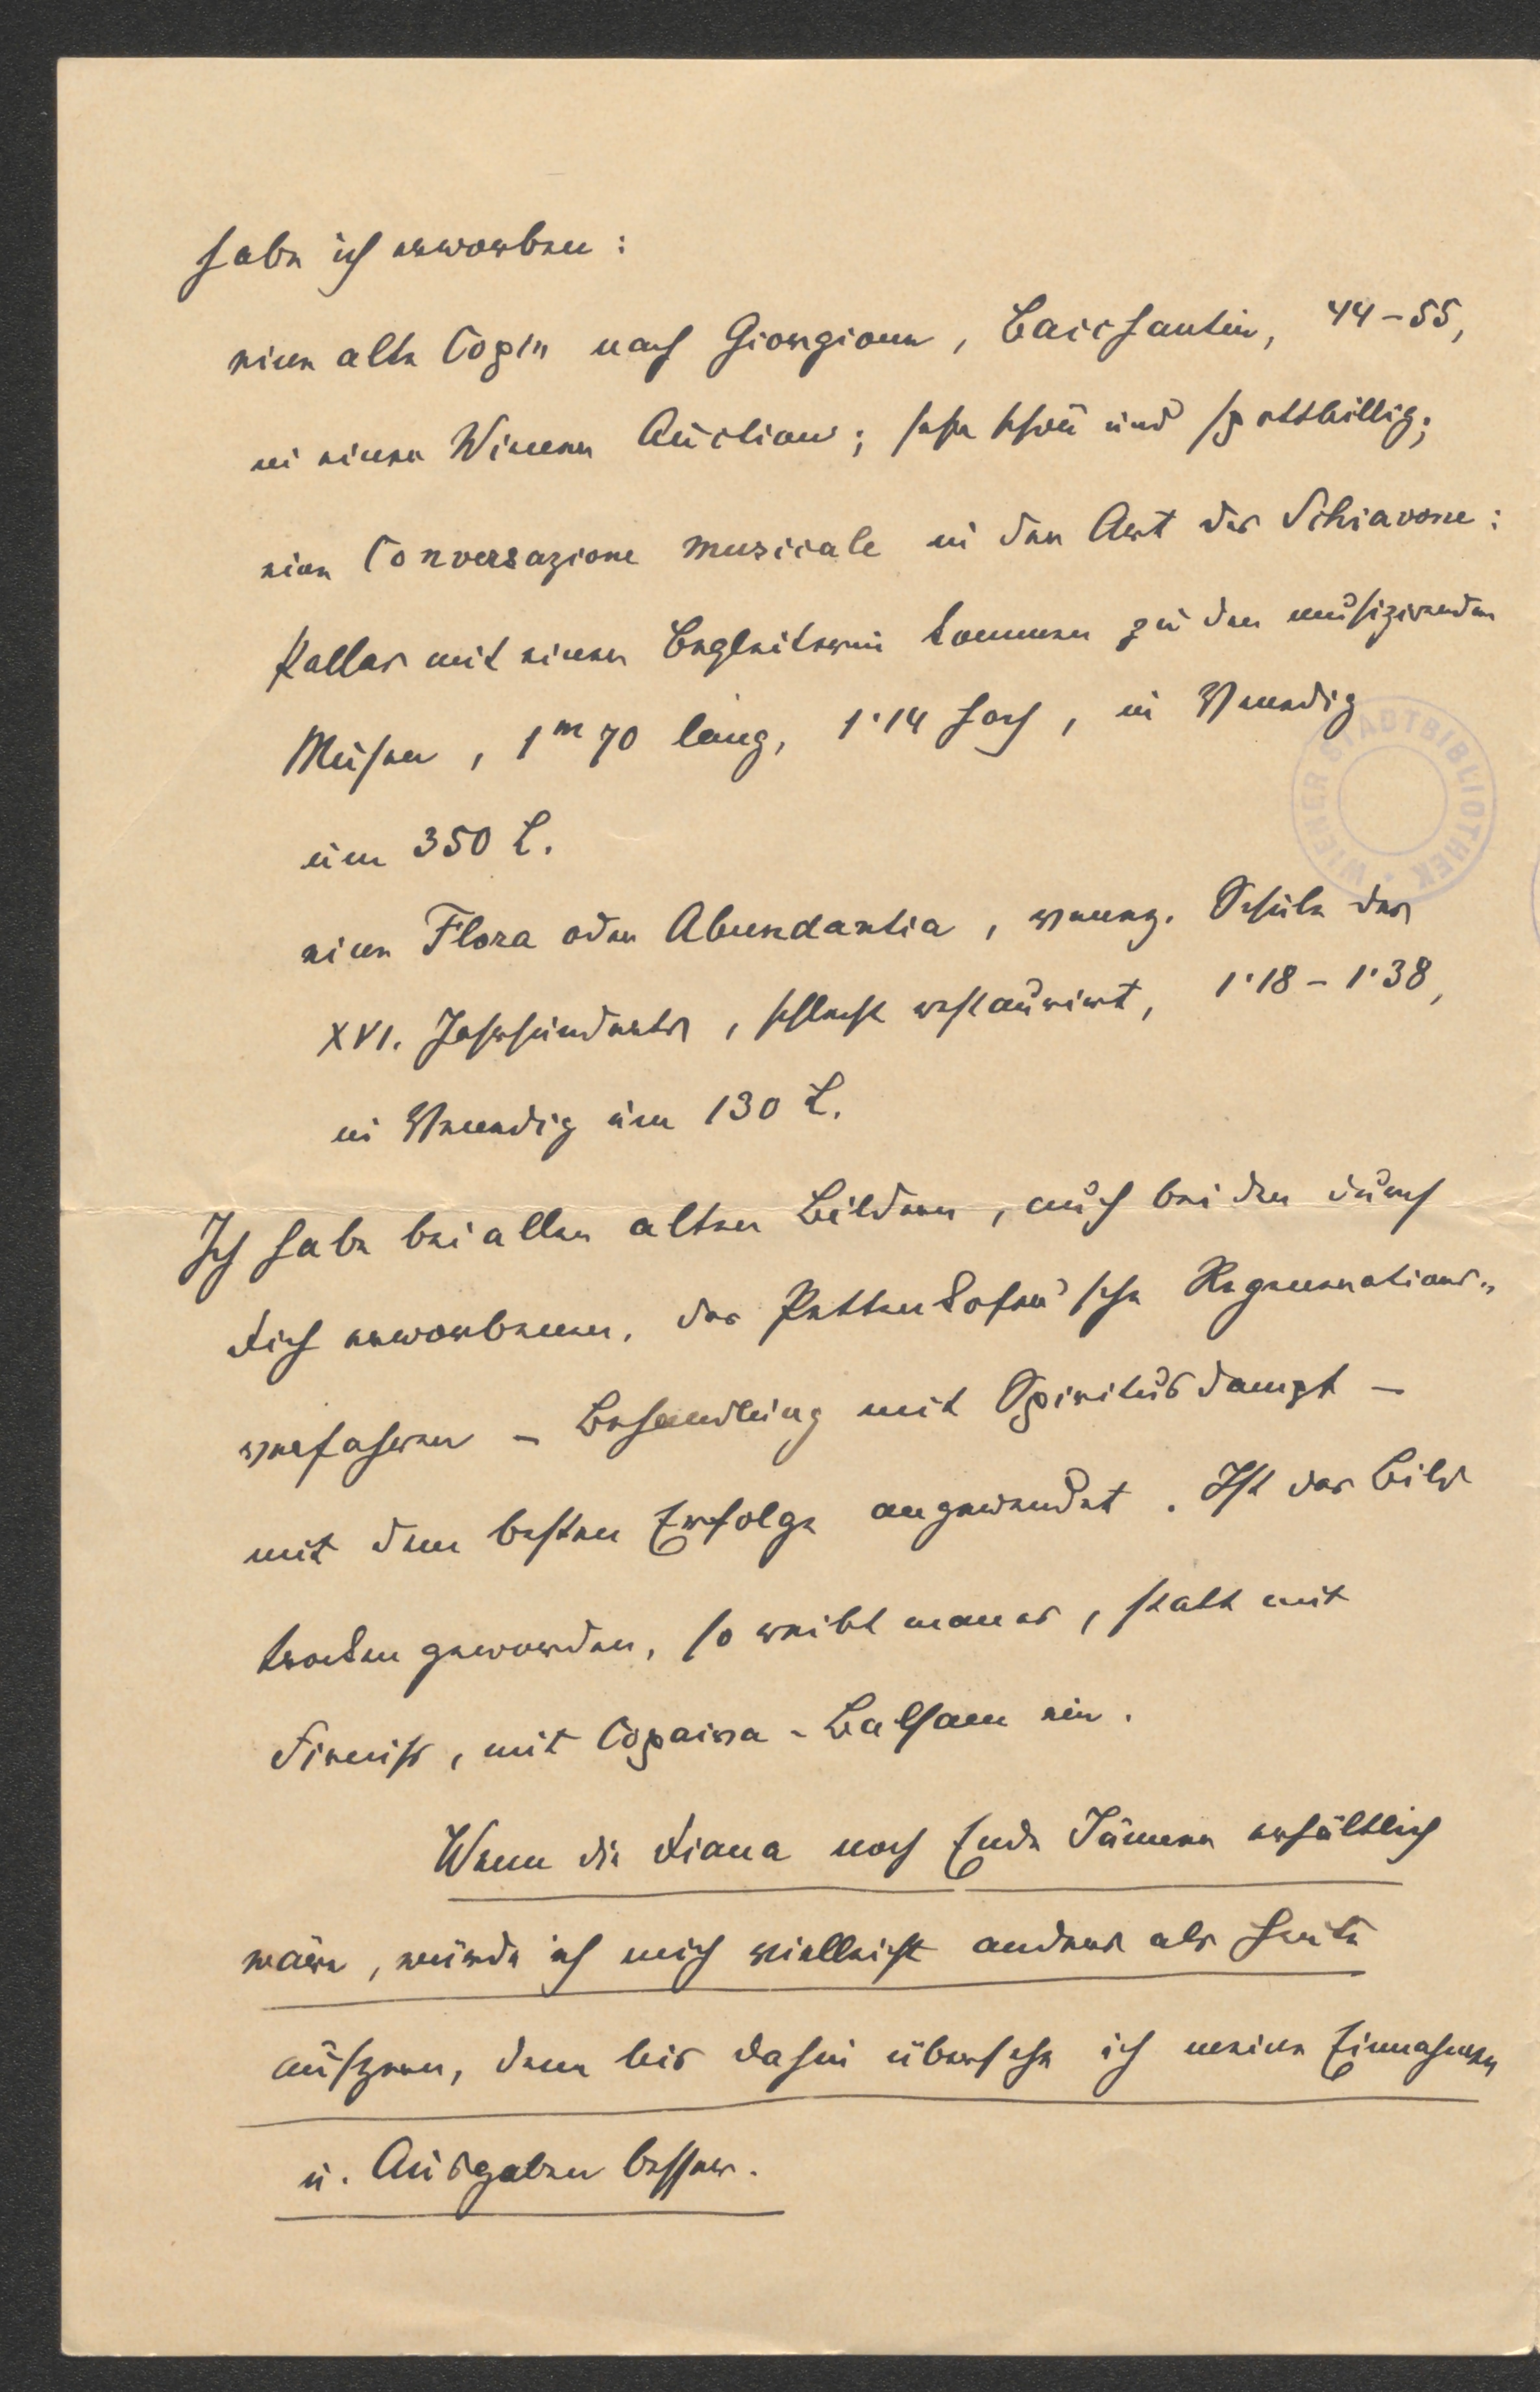 habe ich erworben:
eine alte Copie nach Giorgione, Bacchantin, 44–55,
in einer Wiener Auction; sehr schön und spottbillig;
eine Conversazione musicale in der Art des Schiavone:
Pallas mit einer Begleiterin kommen zu den musizirenden
Musen, 1m 70 lang, 1·14 hoch, in Venedig
um 350 L.
eine Flora oder Abundantia, venez. Schule des
XVI. Jahrhunderts, schlecht restaurirt, 1·18 – 1·38,
in Venedig um 130 L.
Ich habe bei allen alten Bildern, auch bei den durch
Dich erworbenen, das Pettenkofer'sche Regenerations-
verfahren – Behandlung mit Spiritusdampf –
mit dem besten Erfolge angewendet. Ist das Bild
trocken geworden, so reibt man es, statt mit
Firniss, mit Copaiva-Balsam ein.
Wenn die Diana noch Ende Jänner erhältlich
wäre, würde ich mich vielleicht anders als heute
äußern, denn bis dahin übersehe ich meine Einnahmen
u. Ausgaben besser.
WIENER STADTBIBLIOTHEK